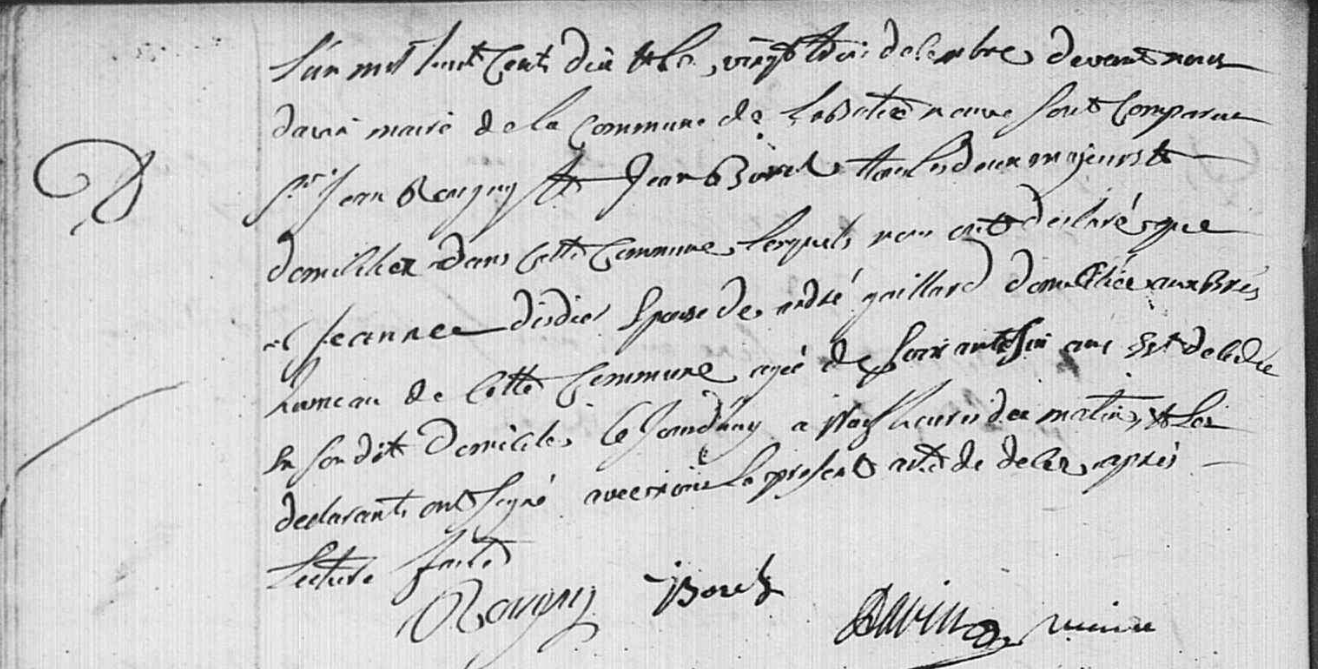 L'an mil huit Cents dix & Le vingt trois decembre devant nous
davin maire de la Commune de Labatie neuve sont Comparus
Sr Jean Rougny & Jean Borel tous les deux majeurs &
domiciliez dans Cette Commune, lesquels nous ont declaré que
Jeanne disdier Epouse de andré gaillard domiciliée aux Brès
hameau de Cette Commune agée de soixante six ans Est decedée
En son dit domicile, Ce Jourdhuy a heures du matin, & Les
declarants ont signé avec nous Le present acte de deces après
Lecture faite
Rougny Borel Davin maire